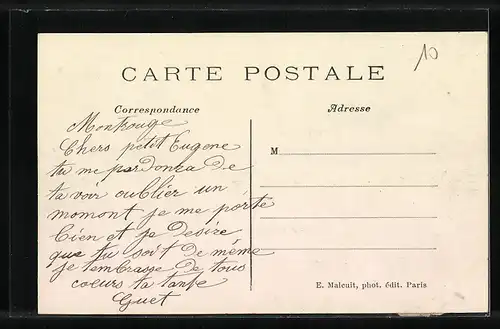 10
CARTE POSTALE
Correspondance
Adresse
Montrouge
Chers petit Eugene
tu me pardonra de
ta voir oublier un
momont je me porte
bien et je desire
que tu soit de même
je tembrasse de tous
coeurs ta tante
Guet
M
E. Malcuit, phot. édit. Paris